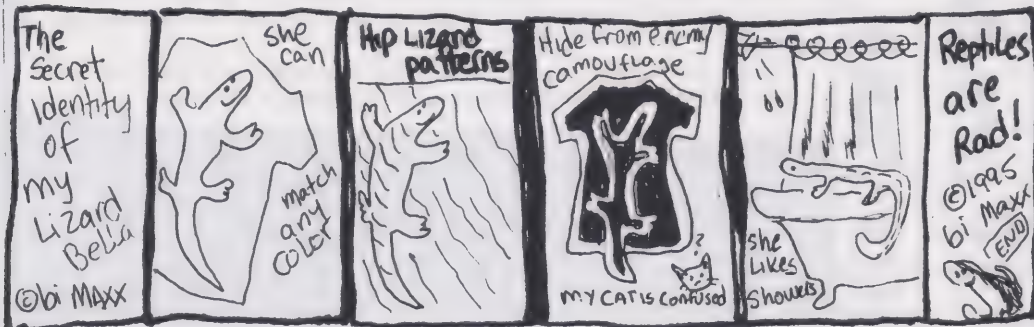 The
Secret
Identity
of
my
Lizard
Bella
©bi MAXX
she
can
match
any
color
Hip Lizard
patterns
Hide from enemy
camouflage
?
my CAT is confused
she
Likes
Showers
Reptiles
are
Rad!
©1995
bi Maxx
END